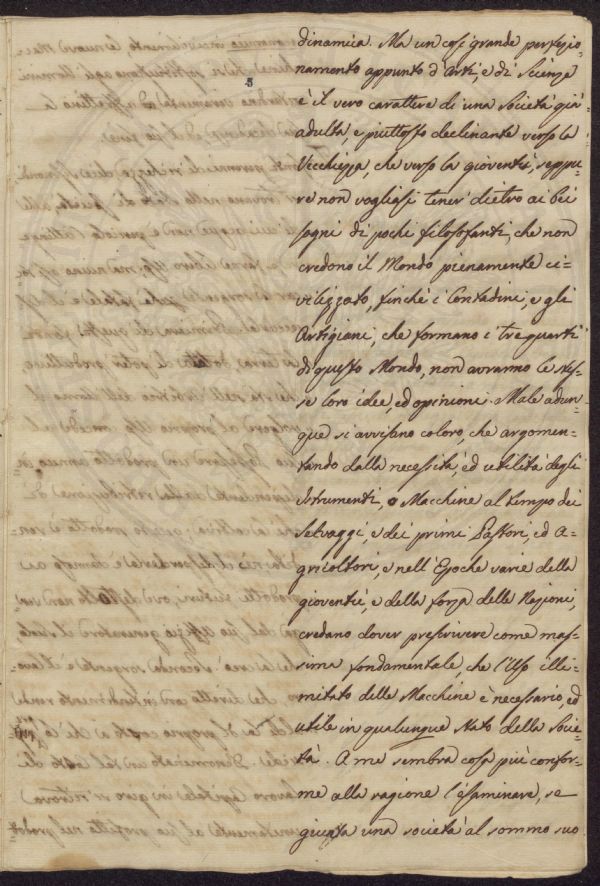 5
dinamica. Ma un così grande perfezio-
namento appunto d'Arti, e di Scienze
è il vero carattere di una Società già
adulta, e piuttosto declinante verso la
Vecchiezza, che verso la gioventù, seppu-
re non vogliasi tener dietro ai bei
sogni di pochi filosofanti, che non
credono il Mondo pienamente ci-
vilizzato, finchè i Contadini, e gli
Artigiani, che formano i tre quarti
di questo Mondo, non avranno le stes-
se loro idee, ed opinioni. Male adun-
que si avvisano coloro, che argomen-
tando dalla necessità, ed utilità degli
Istrumenti, o Macchine al tempo dei
Selvaggi, e dei primi Pastori, ed A-
gricoltori, e nell'Epoche varie della
gioventù, e della forza delle Nazioni,
credano dover prescrivere come mas-
sima fondamentale, che l'Uso illi-
mitato delle Macchine è necessario, ed
utile in qualunque stato della Socie-
tà. A me sembra cosa più confor-
me alla ragione l'esaminare, se
giunta una società al sommo suo